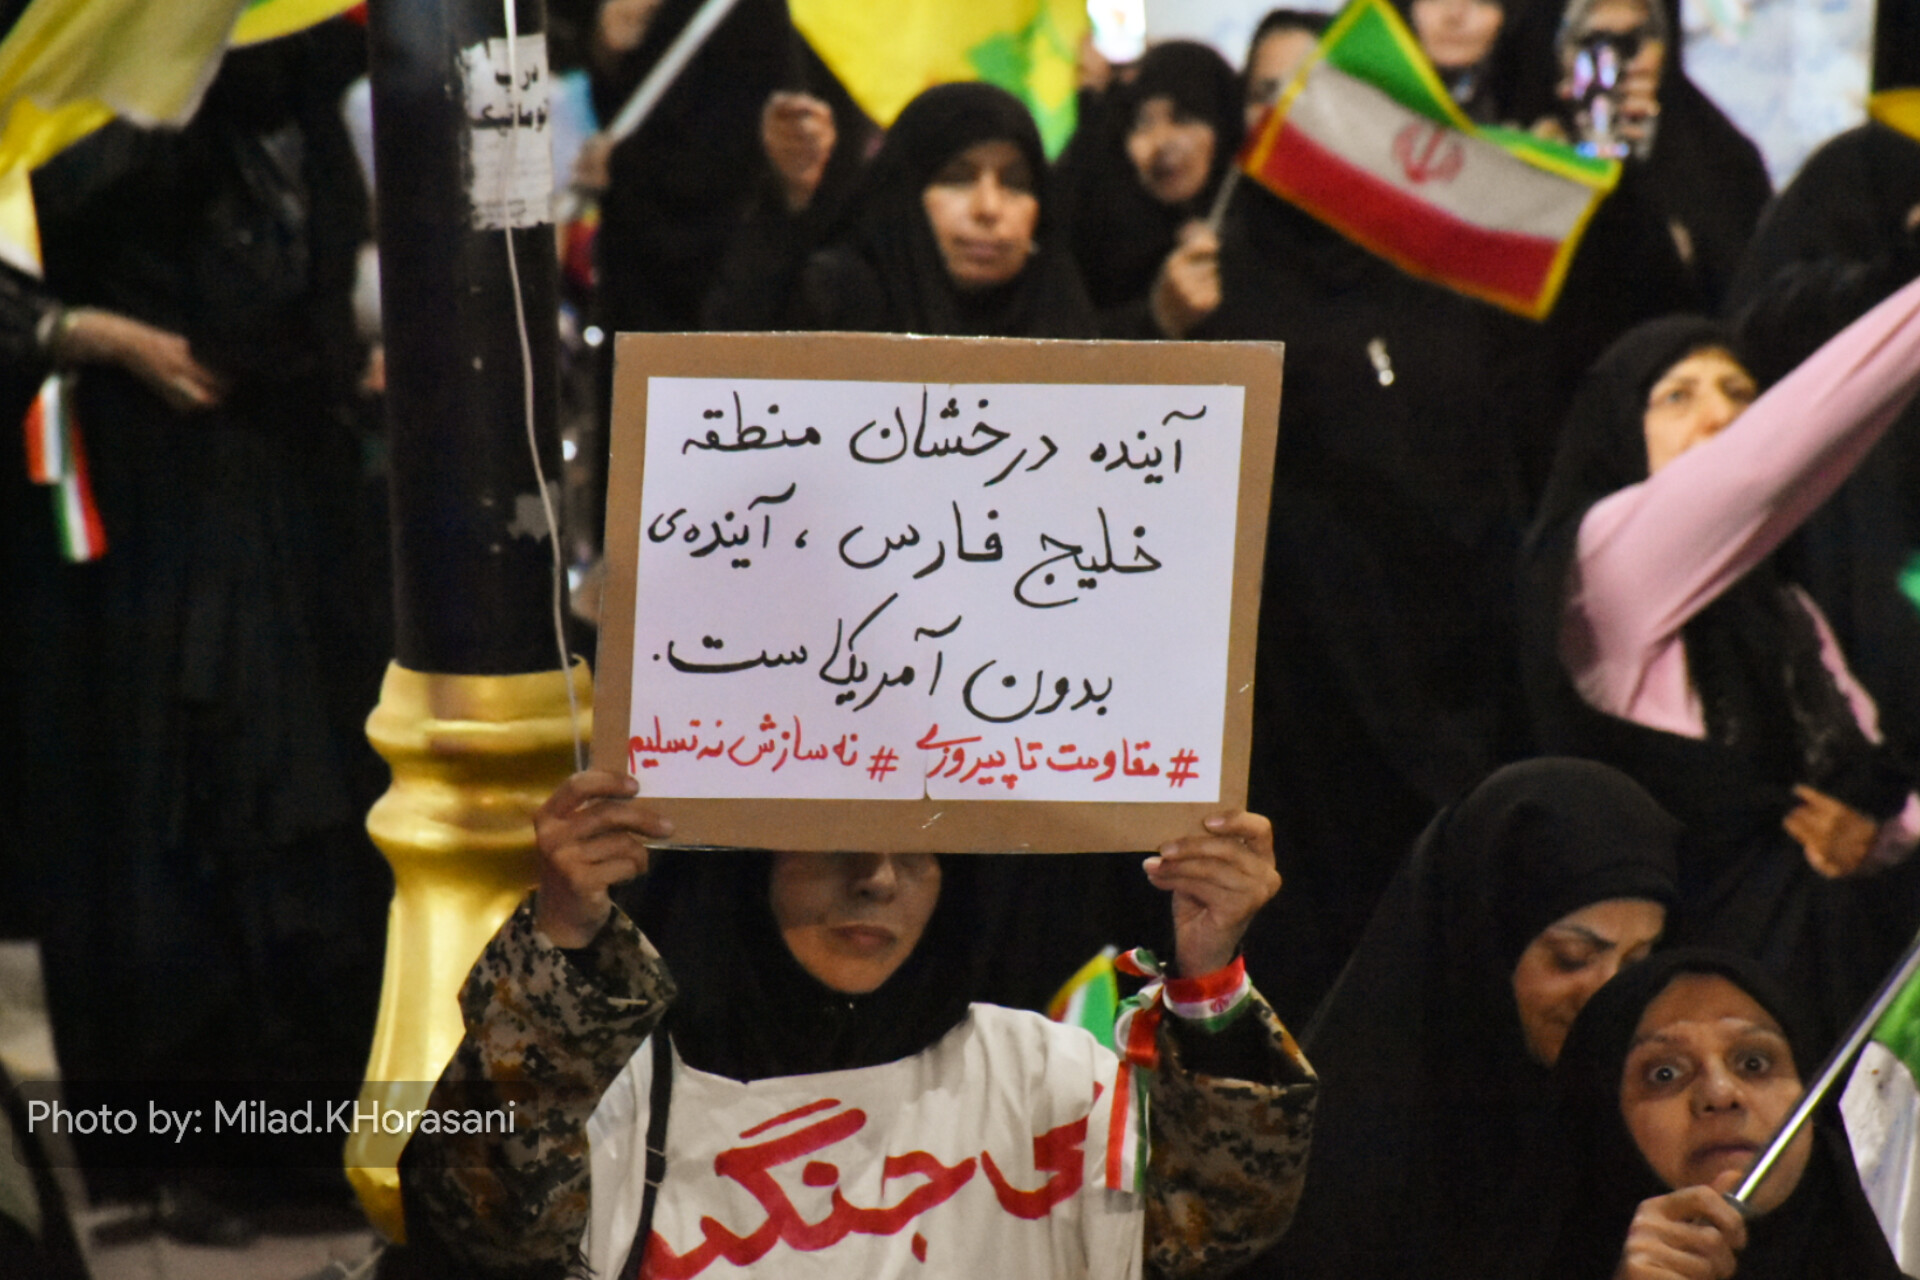 درب
توماتیک
آینده درخشان منطقه
خلیج فارس ، آینده‌ی
بدون آمریکاست.
#مقاومت تا پیروزی #نه سازش نه تسلیم
Photo by: Milad.KHorasani